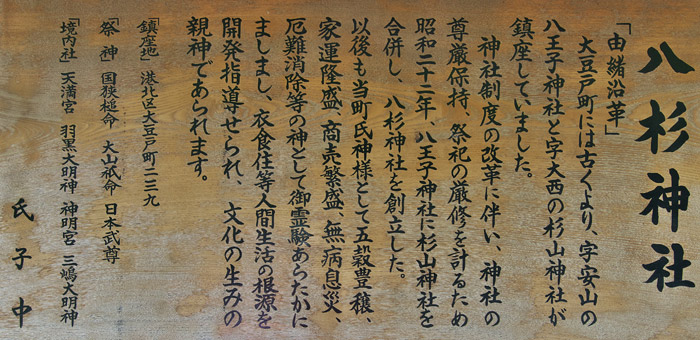 八杉神社
「由緒沿革」
大豆戸町には古くより、字安山の
八王子神社と字大西の杉山神社が
鎮座していました。
神社制度の改革に伴い、神社の
尊厳保持、祭祀の厳修を計るため
昭和二十二年、八王子神社に杉山神社を
合併し、八杉神社を創立した。
以後も当町氏神様として五穀豊穣、
家運隆盛、商売繁盛、無病息災、
厄難消除等の神として御霊験あらたかに
ましまし、衣食住等人間生活の根源を
開発指導せられ、文化の生みの
親神であられます。
「鎮座地」港北区大豆戸町二三九
「祭神」国狭槌命 大山祇命 日本武尊
「境内社」天満宮 羽黒大明神 神明宮 三嶋大明神
氏子中